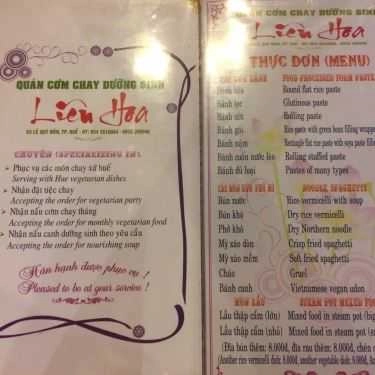 QUÁN CƠM CHAY DƯỠNG SINH
Liên Hoa
CHUYÊN (SPECIALIZING IN)
Phục vụ các món chay xứ huế
Serving with Hue vegetarian dishes
Nhận đặt tiệc chay
Accepting the order for vegetarian party
Nhận nấu cơm chay tháng
Accepting the order for monthly vegetarian food
Nhận nấu canh dưỡng sinh theo yêu cầu
Accepting the order for nourishing soup
Hân hạnh được phục vụ !
Pleased to be at your service !
QUÁN CƠM CHAY DƯỠNG SINH
Liên Hoa
THỰC ĐƠN (MENU)
FOOD PROCESSED FORM PASTE
Round flat rice paste
Glutinous paste
Rolling paste
Rice paste with green bean filling
Rectangle flat rice paste with
Bánh cuốn nước lèo Rolling stuffed paste
Bánh đủ loại Pasties of many types
NOODLE, SPAGHETTI
Bún nước Rice vermicelli with soup
Bún khô Dry rice vermicelli
Phở khô Dry Northern noodle
Mỳ xào dòn Crisp fried spaghetti
Mỳ xào mềm Soft fried spaghetti
Cháo Gruel
Bánh canh Vietnamese vegan udon
MÓN LẨU STEAM POT MIXED FOO
Lẩu thập cẩm (lớn) Mixed food in steam pot
Lẩu thập cẩm (nhỏ) Mixed food in steam pot
(Đĩa bún thêm: 8.000đ, đĩa rau thêm: 8.000đ, chén
(Another rice vermicelli dish: 8.000đ, another vegetable dish: 8.000đ,